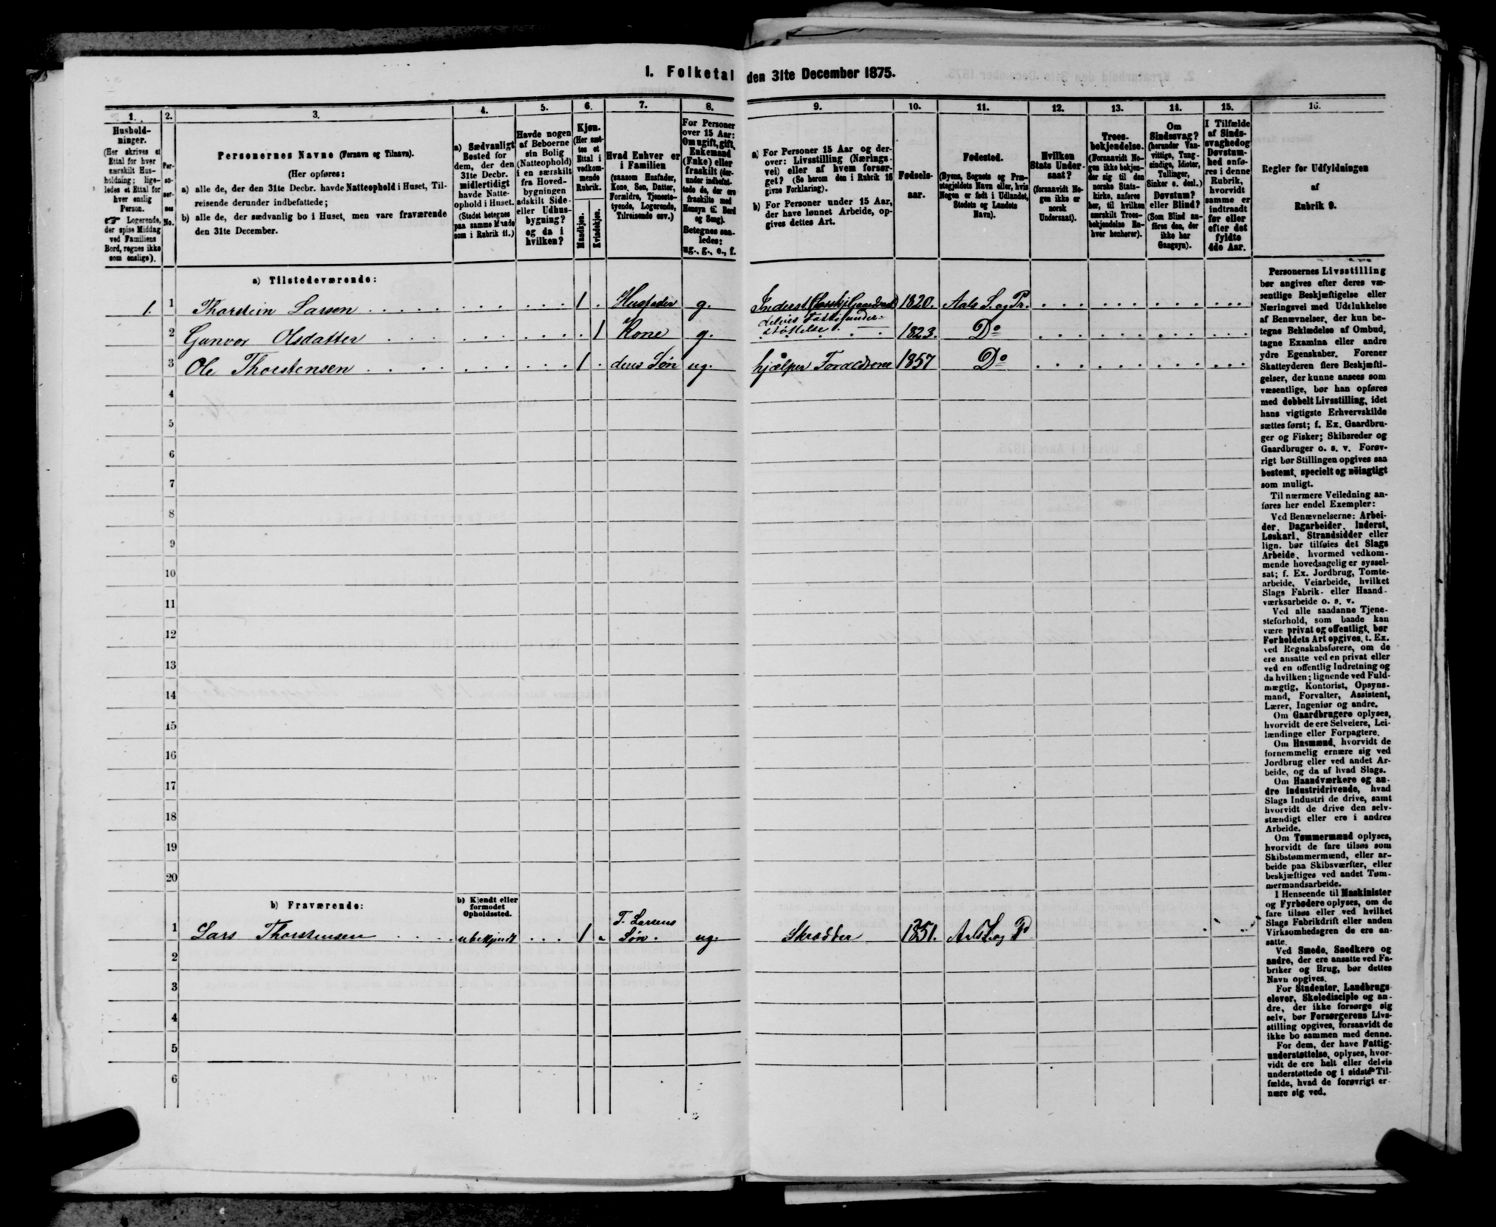 I. Folketal den 31te December 1875.
1. 2. 3. 4. 5. 6. 7. 8. 9. 10. 11. 12. 13. 14. 15. 16.
Hushold-
ninger.
(Her skrives et
Ettal for hver
særskilt Hus-
holdning; lige-
ledes et Ettal for
hver enslig
Person.
Logerende,
der spise Middag
ved Familiens
Bord, regnes ikke
som enslige).
Per-
soner-
nes
No.
Personernes Navne (Fornavn og Tilnavn).
(Her opføres:
a) alle de, der den 31te Decbr. havde Natteophold i Huset, Til-
reisende derunder indbefattede;
b) alle de, der sædvanlig bo i Huset, men vare fraværende
den 31te December.
a) Sædvanligt
Bosted for
dem, der den
31te Decbr.
midlertidigt
havde Natte-
ophold i Huset.
(Stedet betegnes
paa samme Maade
som i Rubrik 11.)
Havde nogen
af Beboerne
sin Bolig
(Natteophold)
i en særskilt
fra Hoved-
bygningen
adskilt Side-
eller Udhus-
bygning?
og da i
hvilken?
Kjøn.
(Her sæt-
tes et
Ettal i
vedkom-
mende
Rubrik.)
Mandkjøn.
Kvindekjøn.
Hvad Enhver er
i Familien
(saasom Husfader,
Kone, Søn, Datter,
Forældre, Tjeneste-
tyende, Logerende,
Tilreisende osv.)
For Personer
over 15 Aar:
Om ugift, gift,
Enkemand
(Enke) eller
fraskilt (der-
under indbefat-
tede de, der ere
fraskilte med
Hensyn til Bord
og Seng).
Betegnes saa-
ledes:
ug., g., e., f.
a) For Personer 15 Aar og der-
over: Livsstilling (Nærings-
vei) eller af hvem forsør-
get? (Se herom den i Rubrik 16
givne Forklaring).
b) For Personer under 15 Aar,
der have lønnet Arbeide, op-
gives dettes Art.
Fødsels-
aar.
Fødested.
(Byens, Sognets og Præ-
stegjeldets Navn eller, hvis
Nogen er født i Udlandet,
Stedets og Landets
Navn).
Hvilken
Stats Under-
saat?
(forsaavidt No-
gen ikke er
norsk
Undersaat).
Troes-
bekjendelse.
(Forsaavidt No-
gen ikke bekjen-
der sig til den
norske Stats-
kirke, anføres
her, til hvilken
særskilt Troes-
bekjendelse En-
hver henhører).
Om
Sindssvag?
(herunder Van-
vittige, Tung-
sindige, Idioter,
Sinker o. desl.)
Døvstum?
eller Blind?
(Som Blind an-
føres den, der
ikke har
Gangsyn).
I Tilfælde
af Sinds-
svaghed og
Døvstum-
hed anfø-
res i denne
Rubrik,
hvorvidt
samme er
indtraadt
før eller
efter det
fyldte
4de Aar.
Regler for Udfyldningen
af
Rubrik 9.
a) Tilstedeværende:
1 1 Thorstein Larsen 1 Husfader g. Inderst 1820. Aals S. og Pr.
delvis Fattigunder-
støttelse.
2 Gunvor Olsdatter 1 Kone g. 1823. Do
3 Ole Thorstensen 1 deres Søn ug. hjælper Forældrene 1857 Do
4
5
6
7
8
9
10
11
12
13
14
15
16
17
18
19
20
b) Fraværende:
b) Kjendt eller
formodet
Opholdssted.
1 Lars Thorstensen ubekjendt 1 T. Larsens
Søn. ug. Skrædder 1851. Aals S. og Pd
2
3
4
5
6
Personernes Livsstilling
bør angives efter deres væ-
sentlige Beskjæftigelse eller
Næringsvei med Udelukkelse
af Benævnelser, der kun be-
tegne Beklædelse af Ombud,
tagne Examina eller andre
ydre Egenskaber. Forener
Skatteyderen flere Beskjæfti-
gelser, der kunne ansees som
væsentlige, bør han opføres
med dobbelt Livsstilling, idet
hans vigtigste Erhvervskilde
sættes først; f. Ex. Gaardbru-
ger og Fisker; Skibsreder og
Gaardbruger o. s. v. Forøv-
rigt bør Stillingen opgives saa
bestemt, specielt og nöiagtigt
som muligt.
Til nærmere Veiledning an-
føres her endel Exempler:
Ved Benævnelserne: Arbei-
der, Dagarbeider, Inderst,
Løskarl, Strandsidder eller
lign. bør tilføies det Slags
Arbeide, hvormed vedkom-
mende hovedsagelig er syssel-
sat; f. Ex. Jordbrug, Tomte-
arbeide, Veiarbeide, hvilket
Slags Fabrik- eller Haand-
værksarbeide o. s. v.
Ved alle saadanne Tjene-
steforhold, som baade kan
være privat og offentligt, bør
Forholdets Art opgives, t. Ex.
ved Regnskabsførere, om de
ere ansatte ved en privat eller
ved en offentlig Indretning og
da hvilken; lignende ved Fuld-
mægtig, Kontorist, Opsyns-
mand, Forvalter, Assistent,
Lærer, Ingeniør og andre.
Om Gaardbrugere oplyses,
hvorvidt de ere Selveiere, Lei-
lændinge eller Forpagtere.
Om Husmænd, hvorvidt de
fornemmelig ernære sig ved
Jordbrug eller ved andet Ar-
beide, og da af hvad Slags.
Om Haandværkere og an-
dre Industridrivende, hvad
Slags Industri de drive, samt
hvorvidt de drive den selv-
stændigt eller ere i andres
Arbeide.
Om Tømmermænd oplyses,
hvorvidt de fare tilsøs som
Skibstømmermænd, eller ar-
beide paa Skibsværfter, eller
beskjæftiges ved andet Tøm-
mermandsarbeide.
I Henseende til Maskinister
og Fyrbødere oplyses, om de
fare tilsøs eller ved hvilket
Slags Fabrikdrift eller anden
Virksomhedsgren de ere an-
satte.
Ved Smede, Snedkere og
andre, der ere ansatte ved Fa-
briker og Brug, bør dettes
Navn opgives.
For Studenter, Landbrugs-
elever, Skoledisciple og an-
dre, der ikke forsørge sig
selv, bør Forsørgerens Livs-
stilling opgives, forsaavidt de
ikke bo sammen med denne.
For dem, der have Fattig-
understøttelse, oplyses, hvor-
vidt de ere helt eller delvis
understøttede og i sidste Til-
fælde, hvad de forøvrigt er-
nære sig ved.